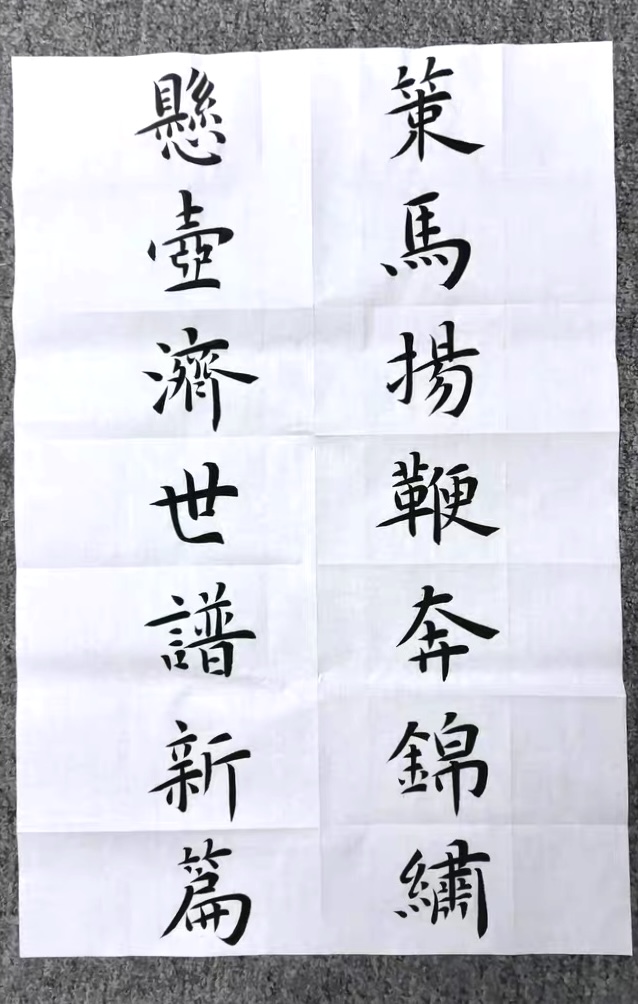 策馬揚鞭奔錦繡
懸壺濟世譜新篇